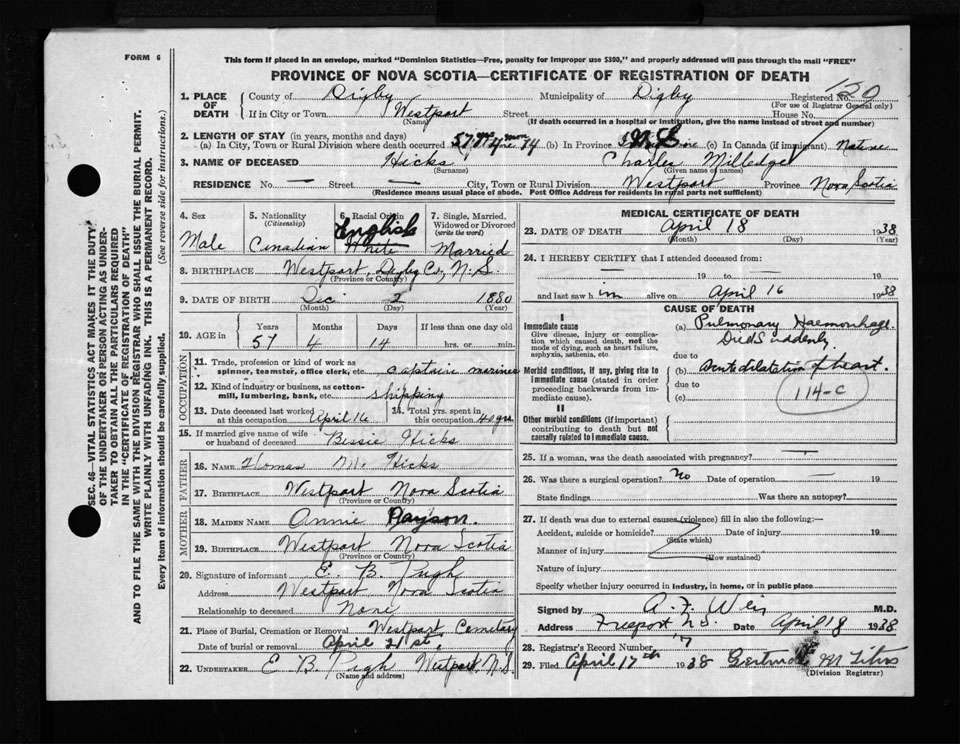 FORM 6
This form if placed in an envelope, marked "Dominion Statistics—Free, penalty for improper use $300," and properly addressed will pass through the mail "FREE"
PROVINCE OF NOVA SCOTIA—CERTIFICATE OF REGISTRATION OF DEATH
SEC. 46—VITAL STATISTICS ACT MAKES IT THE DUTY
OF THE UNDERTAKER OR PERSON ACTING AS UNDER-
TAKER TO OBTAIN ALL THE PARTICULARS REQUIRED
IN THE "CERTIFICATE OF REGISTRATION OF DEATH"
AND TO FILE THE SAME WITH THE DIVISION REGISTRAR WHO SHALL ISSUE THE BURIAL PERMIT.
WRITE PLAINLY WITH UNFADING INK. THIS IS A PERMANENT RECORD.
Every item of information should be carefully supplied. (See reverse side for instructions.)
1. PLACE OF DEATH County of Digby Municipality of Digby Registered No. 120
(For use of Registrar General only)
If in City or Town Westport Street House No.
(Name) (If death occurred in a hospital or institution, give the name instead of street and number)
2. LENGTH OF STAY (in years, months and days)
(a) In City, Town or Rural Division where death occurred 57 yrs 4 mon 14 (b) In Province (c) In Canada (if immigrant) Native
3. NAME OF DECEASED Hicks Charles Milledge
(Surname) (Given name or names)
RESIDENCE No. — Street — City, Town or Rural Division Westport Province Nova Scotia
(Residence means usual place of abode. Post Office Address for residents in rural parts not sufficient)
4. Sex Male
5. Nationality (Citizenship) Canadian
6. Racial Origin English White
7. Single, Married, Widowed or Divorced (write the word) Married
8. BIRTHPLACE Westport, Digby Co, N.S.
(Province or Country)
9. DATE OF BIRTH Dec 2 1880
(Month) (Day) (Year)
10. AGE in Years 57 Months 4 Days 14 If less than one day old hrs. or min.
OCCUPATION
11. Trade, profession or kind of work as spinner, teamster, office clerk, etc. captain mariner
12. Kind of industry or business, as cotton-mill, lumbering, bank, etc. shipping
13. Date deceased last worked at this occupation April 16
14. Total yrs. spent in this occupation 40 yrs
15. If married give name of wife or husband of deceased Bessie Hicks
FATHER
16. NAME Thomas M. Hicks
17. BIRTHPLACE Westport Nova Scotia
(Province or Country)
MOTHER
18. MAIDEN NAME Annie Payson.
19. BIRTHPLACE Westport Nova Scotia
(Province or Country)
20. Signature of informant E. B. Pugh
Address Westport Nova Scotia
Relationship to deceased None
21. Place of Burial, Cremation or Removal Westport Cemetary
Date of burial or removal April 21st,
22. UNDERTAKER E B Pugh Westport, N.S.
(Name and address)
MEDICAL CERTIFICATE OF DEATH
23. DATE OF DEATH April 18 1938
(Month) (Day) (Year)
24. I HEREBY CERTIFY that I attended deceased from:
— 19 to — 19
and last saw him alive on April 16 1938
CAUSE OF DEATH
I
Immediate cause
Give disease, injury or complication which caused death, not the mode of dying, such as heart failure, asphyxia, asthenia, etc
(a) Pulmonary Haemorrhage.
Died Suddenly
due to
Morbid conditions, if any, giving rise to immediate cause (stated in order proceeding backwards from immediate cause).
(b) Acute dilatation of heart.
due to
(c)
114-C
II
Other morbid conditions (if important) contributing to death but not causally related to immediate cause.
25. If a woman, was the death associated with pregnancy? —
26. Was there a surgical operation? No Date of operation — 19
State findings Was there an autopsy?
27. If death was due to external causes (violence) fill in also the following:
Accident, suicide or homicide? Date of injury 19
(State which)
Manner of injury
(How sustained)
Nature of injury
Specify whether injury occurred in industry, in home, or in public place
Signed by A. F. Weir M.D.
Address Freeport N.S. Date April 18 1938
28. Registrar's Record Number 7
29. Filed April 17th 1938 Gertrude M Titus
(Division Registrar)